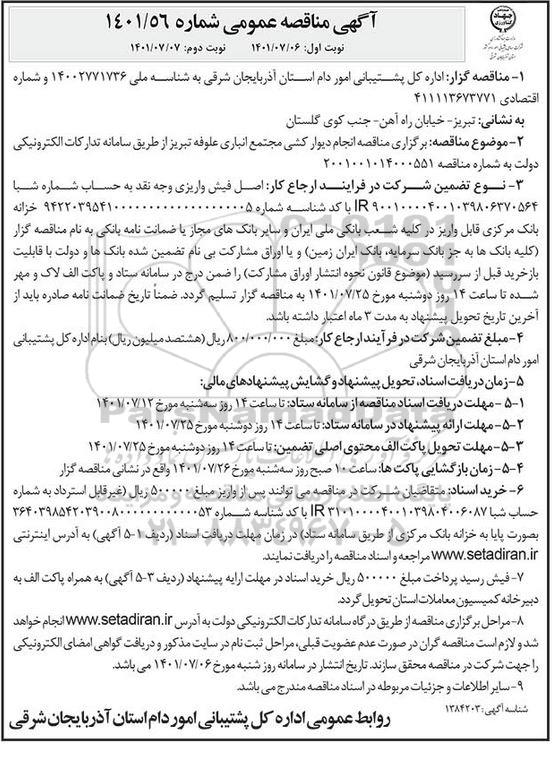 آگهی مناقصه عمومی شماره ۱۴۰۱/۵۶
نوبت اول: ۱۴۰۱/۰۷/۰۶ نوبت دوم: ۱۴۰۱/۰۷/۰۷
جهاد کشاورزی
۱- مناقصه گزار: اداره کل پشتیبانی امور دام استان آذربایجان شرقی به شناسه ملی ۱۴۰۰۲۷۷۱۷۳۶ و شماره
اقتصادی ۴۱۱۱۱۳۶۷۳۷۷۱
به نشانی: تبریز- خیابان راه آهن- جنب کوی گلستان
۲- موضوع مناقصه: برگزاری مناقصه انجام دیوار کشی مجتمع انباری علوفه تبریز از طریق سامانه تدارکات الکترونیکی
دولت به شماره مناقصه ۲۰۰۱۰۰۱۰۱۴۰۰۰۵۵۱
۳- نوع تضمین شرکت در فرایند ارجاع کار: اصل فیش واریزی وجه نقد به حساب شماره شبا
IR ۹۰۰۱۰۰۰۰۴۰۰۱۰۳۹۸۰۶۳۷۰۵۶۴ با کد شناسه شماره خزانه
بانک مرکزی قابل واریز در کلیه شعب بانکی ملی ایران و سایر بانک های مجاز یا ضمانت نامه بانکی به نام مناقصه گزار
(کلیه بانک ها به جز بانک سرمایه، بانک ایران زمین) و یا اوراق مشارکت بی نام تضمین شده بانک ها و دولت با قابلیت
بازخرید قبل از سررسید (موضوع قانون نحوه انتشار اوراق مشارکت) را ضمن درج در سامانه ستاد و پاکت الف لاک و مهر
شده تا ساعت ۱۴ روز دوشنبه مورخ ۱۴۰۱/۰۷/۲۵ به مناقصه گزار تسلیم گردد. ضمناً تاریخ ضمانت نامه صادره باید از
آخرین تاریخ تحویل پیشنهاد به مدت ۳ ماه اعتبار داشته باشد.
۴- مبلغ تضمین شرکت در فرآیند ارجاع کار: مبلغ ۸۰۰/۰۰۰/۰۰۰ ریال (هشتصد میلیون ریال) بنام اداره کل پشتیبانی
امور دام استان آذربایجان شرقی
۵- زمان دریافت اسناد، تحویل پیشنهاد و گشایش پیشنهادهای مالی:
۵-۱- مهلت دریافت اسناد مناقصه از سامانه ستاد: تا ساعت ۱۴ روز سه‌شنبه مورخ ۱۴۰۱/۰۷/۱۲
۵-۲- مهلت ارائه پیشنهاد در سامانه ستاد: تا ساعت ۱۴ روز دوشنبه مورخ ۱۴۰۱/۰۷/۲۵
۵-۳- مهلت تحویل پاکت الف محتوی اصلی تضمین: تا ساعت ۱۴ روز دوشنبه مورخ ۱۴۰۱/۰۷/۲۵
۵-۴- زمان بازگشایی پاکت ها: ساعت ۱۰ صبح روز سه‌شنبه مورخ ۱۴۰۱/۰۷/۲۶ واقع در نشانی مناقصه گزار
۶- خرید اسناد: متقاضیان شرکت در مناقصه می توانند پس از واریز مبلغ ۵۰۰۰۰۰ ریال (غیرقابل استرداد به شماره
حساب شبا IR ۳۱۰۱۰۰۰۰۴۰۰۱۰۳۹۸۰۴۰۰۶۰۸۷ با کد شناسه شماره
بصورت پایا به خزانه بانک مرکزی از طریق سامانه ستاد) در زمان مهلت دریافت اسناد (ردیف ۱-۵ آگهی) به آدرس اینترنتی
www.setadiran.ir مراجعه و اسناد مناقصه را دریافت نمایند.
۷- فیش رسید پرداخت مبلغ ۵۰۰۰۰۰ ریال خرید اسناد در مهلت ارایه پیشنهاد (ردیف ۳-۵ آگهی) به همراه پاکت الف به
دبیرخانه کمیسیون معاملات استان تحویل گردد.
۸- مراحل برگزاری مناقصه از طریق درگاه سامانه تدارکات الکترونیکی دولت به آدرس www.setadiran.ir انجام خواهد
شد و لازم است مناقصه گران در صورت عدم عضویت قبلی، مراحل ثبت نام در سایت مذکور و دریافت گواهی امضای الکترونیکی
را جهت شرکت در مناقصه محقق سازند. تاریخ انتشار در سامانه روز شنبه مورخ ۱۴۰۱/۰۷/۰۶ می باشد.
۹- سایر اطلاعات و جزئیات مربوطه در اسناد مناقصه مندرج می باشد.
شناسه آگهی: ۱۳۸۴۲۰۳
روابط عمومی اداره کل پشتیبانی امور دام استان آذربایجان شرقی